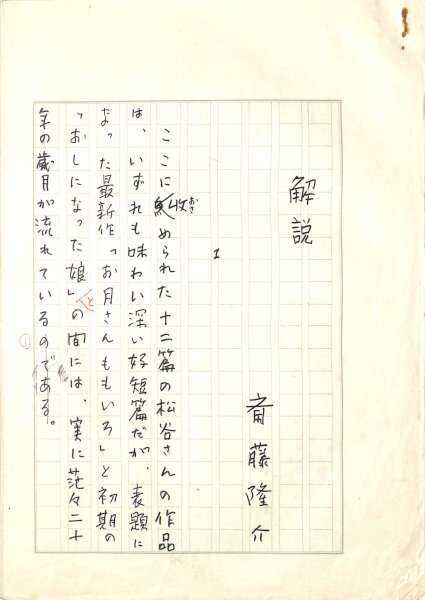 解説
斎藤隆介
I
ここに収められた十二篇の松谷さんの作品
おさ
は、いずれも味わい深い好短篇だが、表題に
なった最新作「お月さんももいろ」と初期の
「おしになった娘」との間には、実に茫々二十
年の歳月が流れているのである。